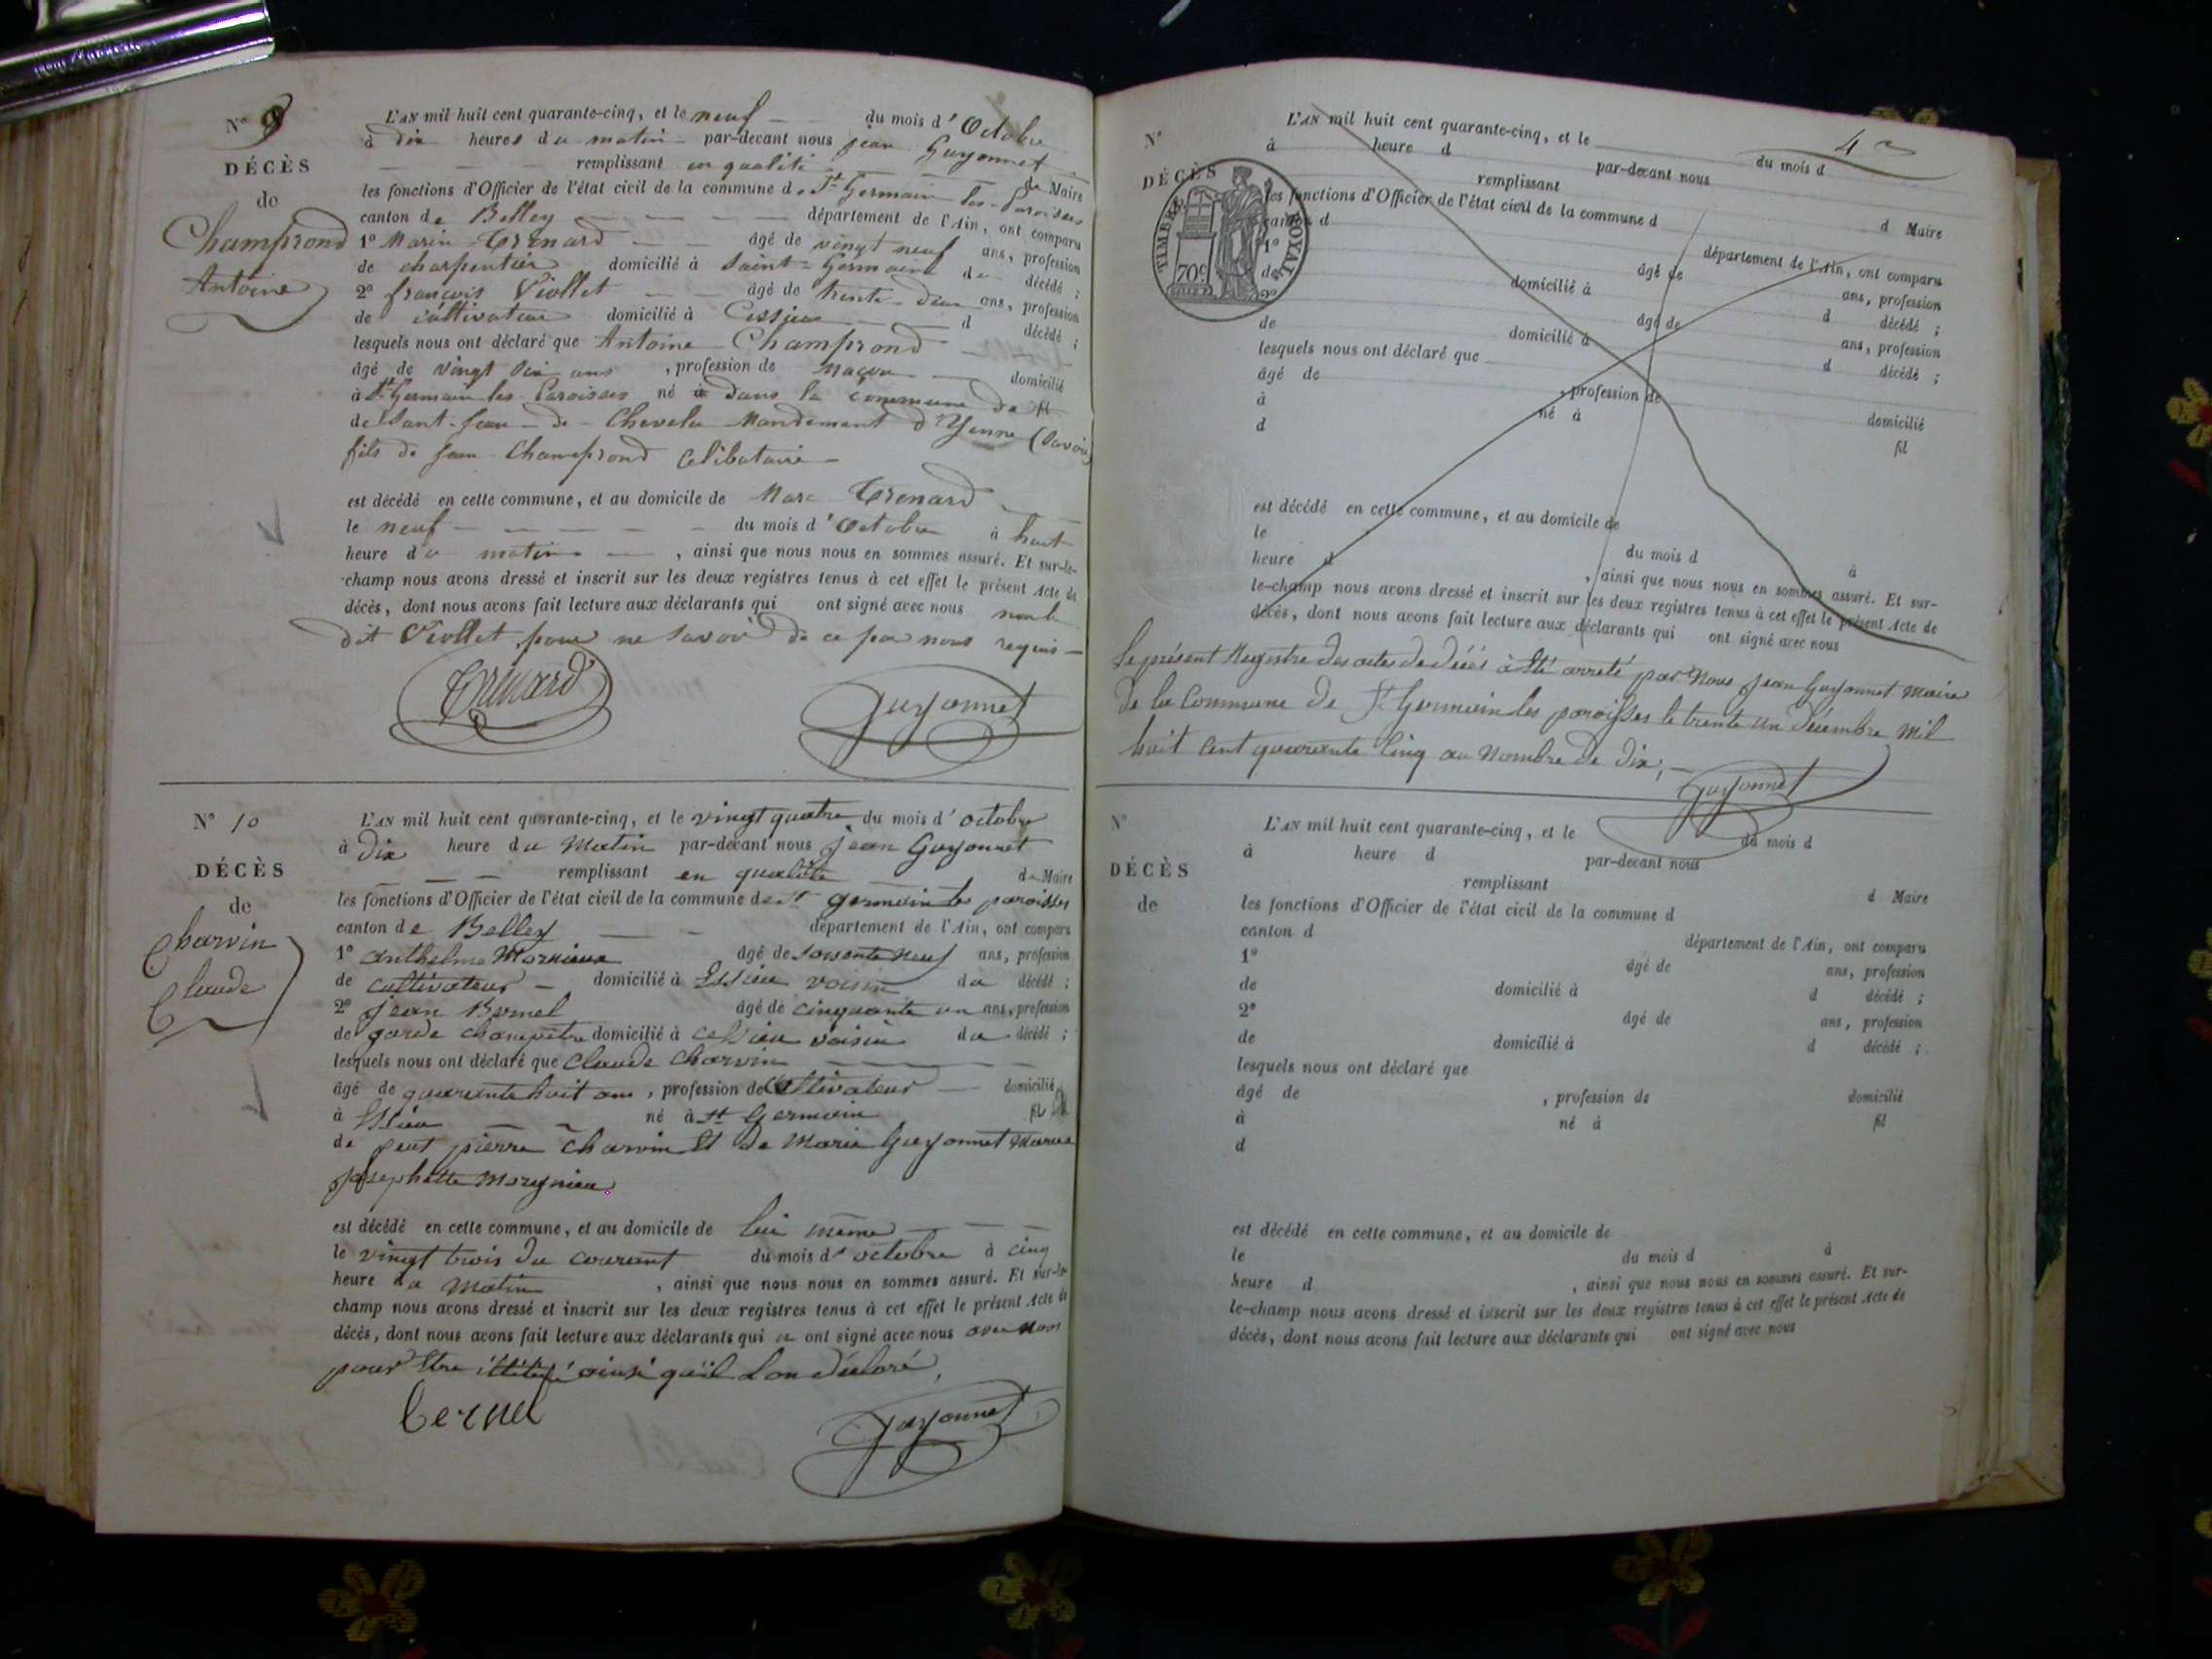 N° 9
DÉCÈS
de
Champrond
Antoine
L'AN mil huit cent quarante-cinq, et le neuf du mois d'Octobre
à dix heures du matin par-devant nous jean Guyonnet
remplissant en qualité de Maire
les fonctions d'Officier de l'état civil de la commune de St Germain les Paroisses
canton de Belley département de l'Ain, ont comparu
1° Marin Trenard âgé de vingt neuf ans, profession
de charpentier domicilié à Saint-Germain du décédé ;
2° françois Viollet âgé de trente-deux ans, profession
de cultivateur domicilié à Cessieu d décédé ;
lesquels nous ont déclaré que Antoine Champrond
âgé de vingt six ans , profession de maçon domicilié
à St Germain les Paroisses né à dans la commune de fil
de Saint-Jean-de-Chevelu Mandement d'Yenne (Savoie)
fils de Jean Champrond Celibataire
est décédé en cette commune, et au domicile de Marc Trenard
le neuf du mois d'Octobre à huit
heure du matin , ainsi que nous nous en sommes assuré. Et sur-le-
champ nous avons dressé et inscrit sur les deux registres tenus à cet effet le présent Acte de
décès, dont nous avons fait lecture aux déclarants qui ont signé avec nous non le
dit Viollet pour ne savoir de ce par nous requis
Trénard
Guyonnet
N° 10
DÉCÈS
de
Charvin
Claude
L'AN mil huit cent quarante-cinq, et le vingt quatre du mois d'octobre
à dix heure du Matin par-devant nous jean Guyonnet
remplissant en qualité de Maire
les fonctions d'Officier de l'état civil de la commune de St germain les paroisses
canton de Belley département de l'Ain, ont comparu
1° anthelme Mornieux âgé de soixante neuf ans, profession
de cultivateur domicilié à Essieu voisin du décédé ;
2° jean Bernel âgé de cinquante un ans, profession
de garde champêtre domicilié à Cessieu voisin du décédé ;
lesquels nous ont déclaré que Claude Charvin
âgé de quarante huit ans , profession de Cultivateur domicilié
à Essieu né à St Germain fil
de feut pierre Charvin Et de Marie Guyonnet Marié
Josephette
est décédé en cette commune, et au domicile de lui même
le vingt trois du courant du mois d'octobre à cinq
heure du Matin , ainsi que nous nous en sommes assuré. Et sur-le-
champ nous avons dressé et inscrit sur les deux registres tenus à cet effet le présent Acte de
décès, dont nous avons fait lecture aux déclarants qui ont signé avec nous
pour Etre ainsi qu'il Lon déclaré,
bernel
Guyonnet
4
N°
DÉCÈS
TIMBRE ROYAL
70c
L'AN mil huit cent quarante-cinq, et le du mois d
à heure d par-devant nous
remplissant d Maire
les fonctions d'Officier de l'état civil de la commune d
canton d département de l'Ain, ont comparu
1° âgé de ans, profession
de domicilié à d décédé ;
2° âgé de ans, profession
de domicilié à d décédé ;
lesquels nous ont déclaré que
âgé de , profession de domicilié
à né à fil
d
est décédé en cette commune, et au domicile de
le du mois d à
heure d , ainsi que nous nous en sommes assuré. Et sur-
le-champ nous avons dressé et inscrit sur les deux registres tenus à cet effet le présent Acte de
décès, dont nous avons fait lecture aux déclarants qui ont signé avec nous
Le présent Registre des actes de décés à Eté arreté par Nous jean Guyonnet Maire
de la Commune de St Germain les paroisses le trente un Décembre Mil
huit Cent quarante Cinq au Nombre de Dix,
Guyonnet
N°
DÉCÈS
de
L'AN mil huit cent quarante-cinq, et le du mois d
à heure d par-devant nous
remplissant d Maire
les fonctions d'Officier de l'état civil de la commune d
canton d département de l'Ain, ont comparu
1° âgé de ans, profession
de domicilié à d décédé ;
2° âgé de ans, profession
de domicilié à d décédé ;
lesquels nous ont déclaré que
âgé de , profession de domicilié
à né à fil
d
est décédé en cette commune, et au domicile de
le du mois d à
heure d , ainsi que nous nous en sommes assuré. Et sur-
le-champ nous avons dressé et inscrit sur les deux registres tenus à cet effet le présent Acte de
décès, dont nous avons fait lecture aux déclarants qui ont signé avec nous